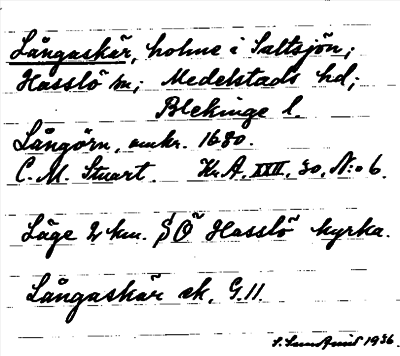 Långaskär, holme i Saltsjön;
Hasslö sn; Medelstads hd;
Blekinge l.
Långörn, omkr. 1680.
C. M. Stuart. Kr. A. XXII, 30, N:o 6.
Läge 2 km. SO Hasslö kyrka.
Långaskär ek. G.11.
1936.